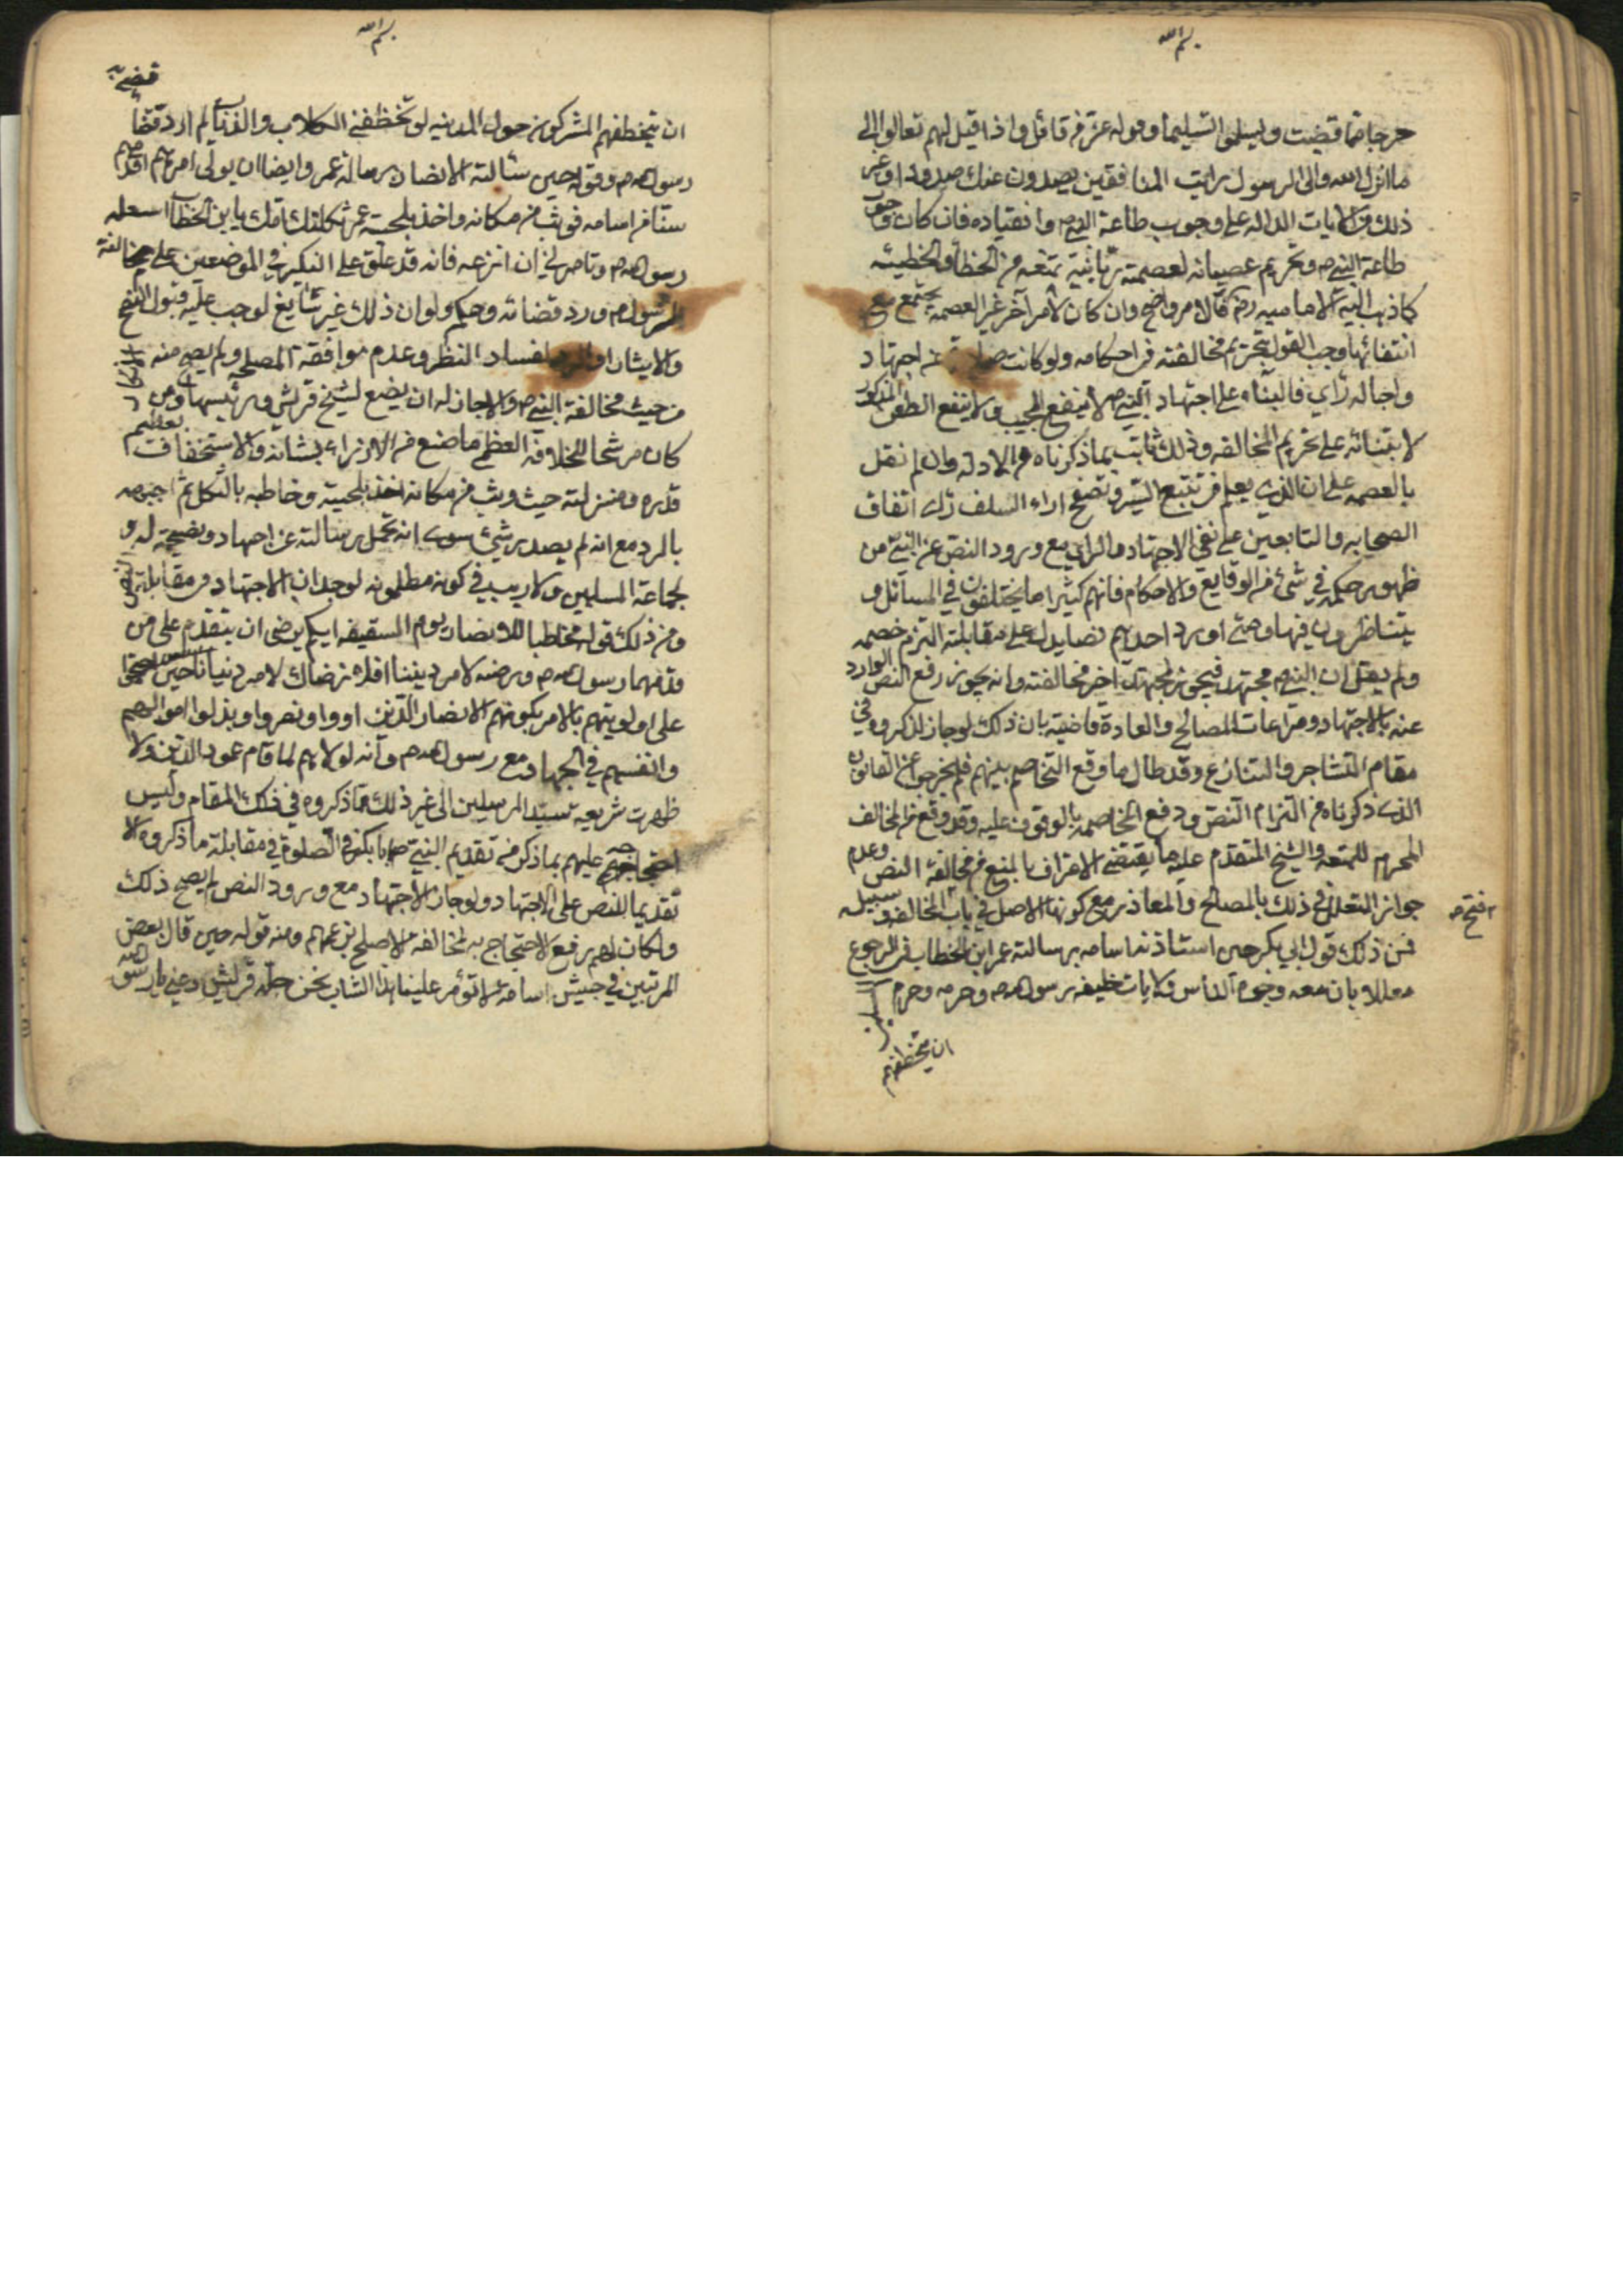 بسم الله
حرجا مما قضيت ويسلموا تسليما وقوله عز من قائل واذا قيل لهم تعالوا الى
ما انزل الله والى الرسول رايت المنافقين يصدون عنك صدودا وغير
ذلك من الايات الداله على وجوب طاعة النبي ص وانقياده فان كان وجوب
طاعة النبي ص وتحريم عصيانه لعصمة ربانية تمنعه من الخطأ والخطيئه
كما ذهب اليه الاماميه رض فالامر واضح وان كان لامر آخر غير العصمه يجتمع مع
انتفائها وجب القول بتحريم مخالفته في احكامه ولو كانت عن اجتهاد
واجالة راي فالبناء على اجتهاد النبي ص لا ينفع المجيب ولا يمنع الطعن المذكور
لابتنائه على تحريم المخالفه وذلك ثابت بما ذكرناه من الادلة وان لم نقل
بالعصمه على ان الذي يعلم من تتبع السير وتصفح اراء السلف اتفاق
الصحابه والتابعين على نفي الاجتهاد والراي مع ورود النص عن النبي ص
ظهور حكمه في شئ من الوقايع والاحكام فانهم كثيرا ما يختلفون في المسائل و
يتناظرون فيها ومتى اورد احدهم نصا يدل على مقابلته التزم خصمه
ولم يقل ان النبي ص مجتهد فيجوز لمجتهد آخر مخالفته وانه يجوز رفع النص الوارد
عنه بالاجتهاد ومراعات المصالح والعادة قاضية بان ذلك لو جاز لذكروه في
مقام التشاجر والتنازع وقد طال ما وقع التخاصم بينهم فلم يخرجوا عن القانون
الذي ذكرناه من التزام النص ودفع المخاصمه بالوقوف عليه وقد وقع من المخالف
المحرم للمتعه والشيخ المتقدم عليه ما يقتضي الاعتراف بالمنع من مخالفة النص وعدم
جواز التعلل في ذلك بالمصالح والمعاذير مع كونهما الاصل في باب المخالفه وسبيله
فمن ذلك قول ابي بكر حين استاذنه اسامه برسالة عمر ابن الخطاب في الرجوع
معللا بان معه وجوه الناس ولا يأمن على خليفه رسول الله ص وحرمه وحرم
ان يتخطفهم
بسم الله
ان يتخطفهم المشركون حول المدينه لو تخطفني الكلاب والذئاب لم ارد قضاء
رسول الله ص وقوله حين سألته الانصار برسالة عمر وايضا ان يولي امرهم اقدم
سنا من اسامه فوثب من مكانه واخذ بلحية عمر ثكلتك امك يا بن الخطاب استعمله
رسول الله ص وتامرني ان انزعه فانه قد علق على النكير في الموضعين على مخالفة
الرسول ص ورد قضائه وحكمه ولو ان ذلك غير شايع لوجب عليه قبول النصح
والايثار او الرد لفساد النظر وعدم موافقة المصلحه ولم يصح منه الانكار
من حيث مخالفة النبي ص ولا جاز له ان يضع لشيخ قريش ورئيسها ومن
كان مرشحا للخلافه العظمى ما صنع من الازراء بشانه والاستخفاف بعظيم
قدره ومنزلته حيث وثب من مكانه اخذ بلحيته وخاطبه بالثكل ثم جبهه
بالرد مع انه لم يصدر شئ سوى انه تحمل رسالته عن اجتهاد ونصيحة له و
لجماعة المسلمين ولا ريب في كونه مظلمونه لوجدان الاجتهاد في مقابلة النص
ومن ذلك قوله مخاطبا للانصار يوم السقيفه ايكم يرضى ان يتقدم على من
قدمهما رسول الله ص ورضيه لامر ديننا افلا نرضاك لامر دنيانا حين احتجوا
على اولويتهم بالامر بكونهم الانصار الذين اووا ونصروا وبذلوا اموالهم
وانفسهم في الجهاد مع رسول الله ص وانه لولاهم لما قام عمود الدين ولا
ظهرت شريعة سيد المرسلين الى غير ذلك مما ذكروه في ذلك المقام وليس
احتجاجهم عليهم بما ذكر من تقديم النبي ص ابا بكر في الصلوة في مقابلة ما ذكروه الا
تقديما للنص على الاجتهاد ولو جاز الاجتهاد مع ورود النص لم يصح ذلك
ولكان لهم رفع الاحتجاج به لمخالفة الاصلح بزعمهم ومنه قوله حين قال بعض
المرتبين في جيش اسامة لا تؤمر علينا هذا الشاب ونحن جلة قريش دعني يا رسول الله